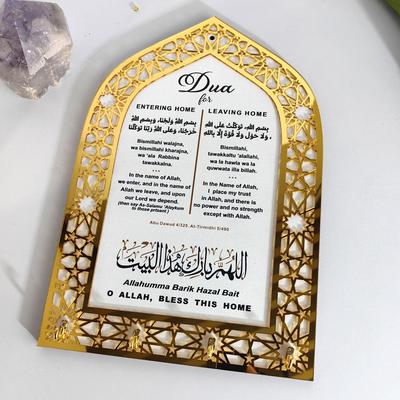 Dua
for
ENTERING HOME
بِسْمِ اللهِ وَلَجْنَا، وَبِسْمِ اللهِ
خَرَجْنَا، وَعَلَى اللهِ رَبِّنَا تَوَكَّلْنَا
Bismillahi walajna,
wa bismillahi kharajna,
wa 'ala Rabbina
tawakkalna.
In the name of Allah,
we enter, and in the name of
Allah we leave, and upon
our Lord we depend.
(then say As-Salamu 'Alaykum
to those present)
LEAVING HOME
بِسْمِ اللهِ، تَوَكَّلْتُ عَلَى اللهِ
، وَلَا حَوْلَ وَلَا قُوَّةَ إِلَّا بِاللهِ
Bismillahi,
tawakkaltu 'alallahi,
wa la hawla wa la
quwwata illa billah.
In the Name of Allah,
I place my trust
in Allah, and there is
no power and no strength
except with Allah.
Abu Dawud 4/325, At-Tirmidhi 5/490
اللهم بارك هذا البيت
Allahumma Barik Hazal Bait
O ALLAH, BLESS THIS HOME